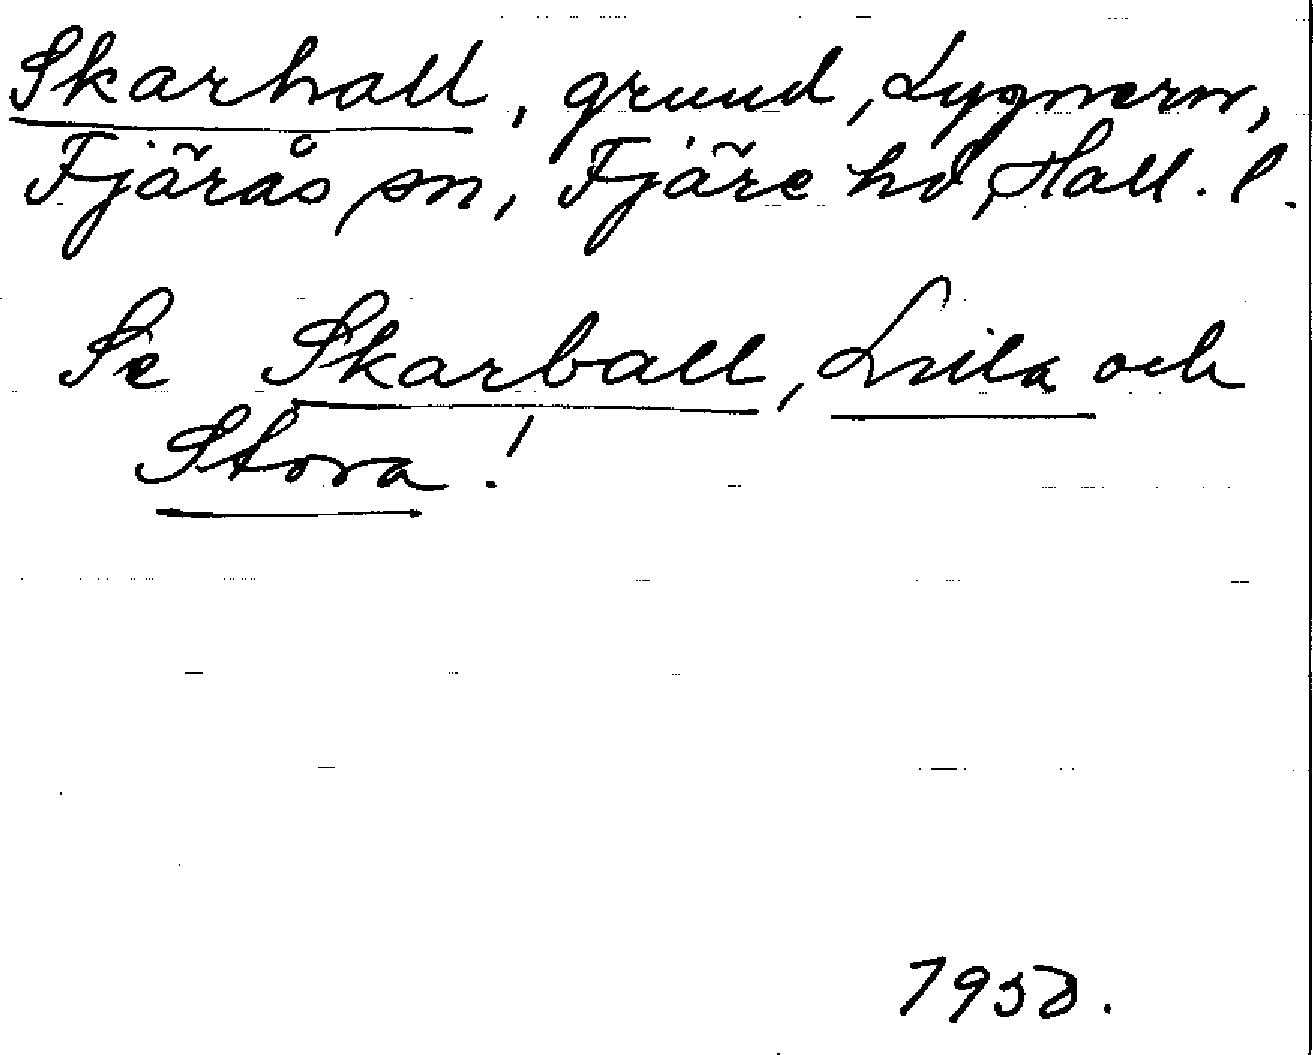 Skarhall, grund, Lygnern,
Fjärås sn, Fjäre hd, Hall. l.
Se Skarball, Lilla och
Stora!
1958.